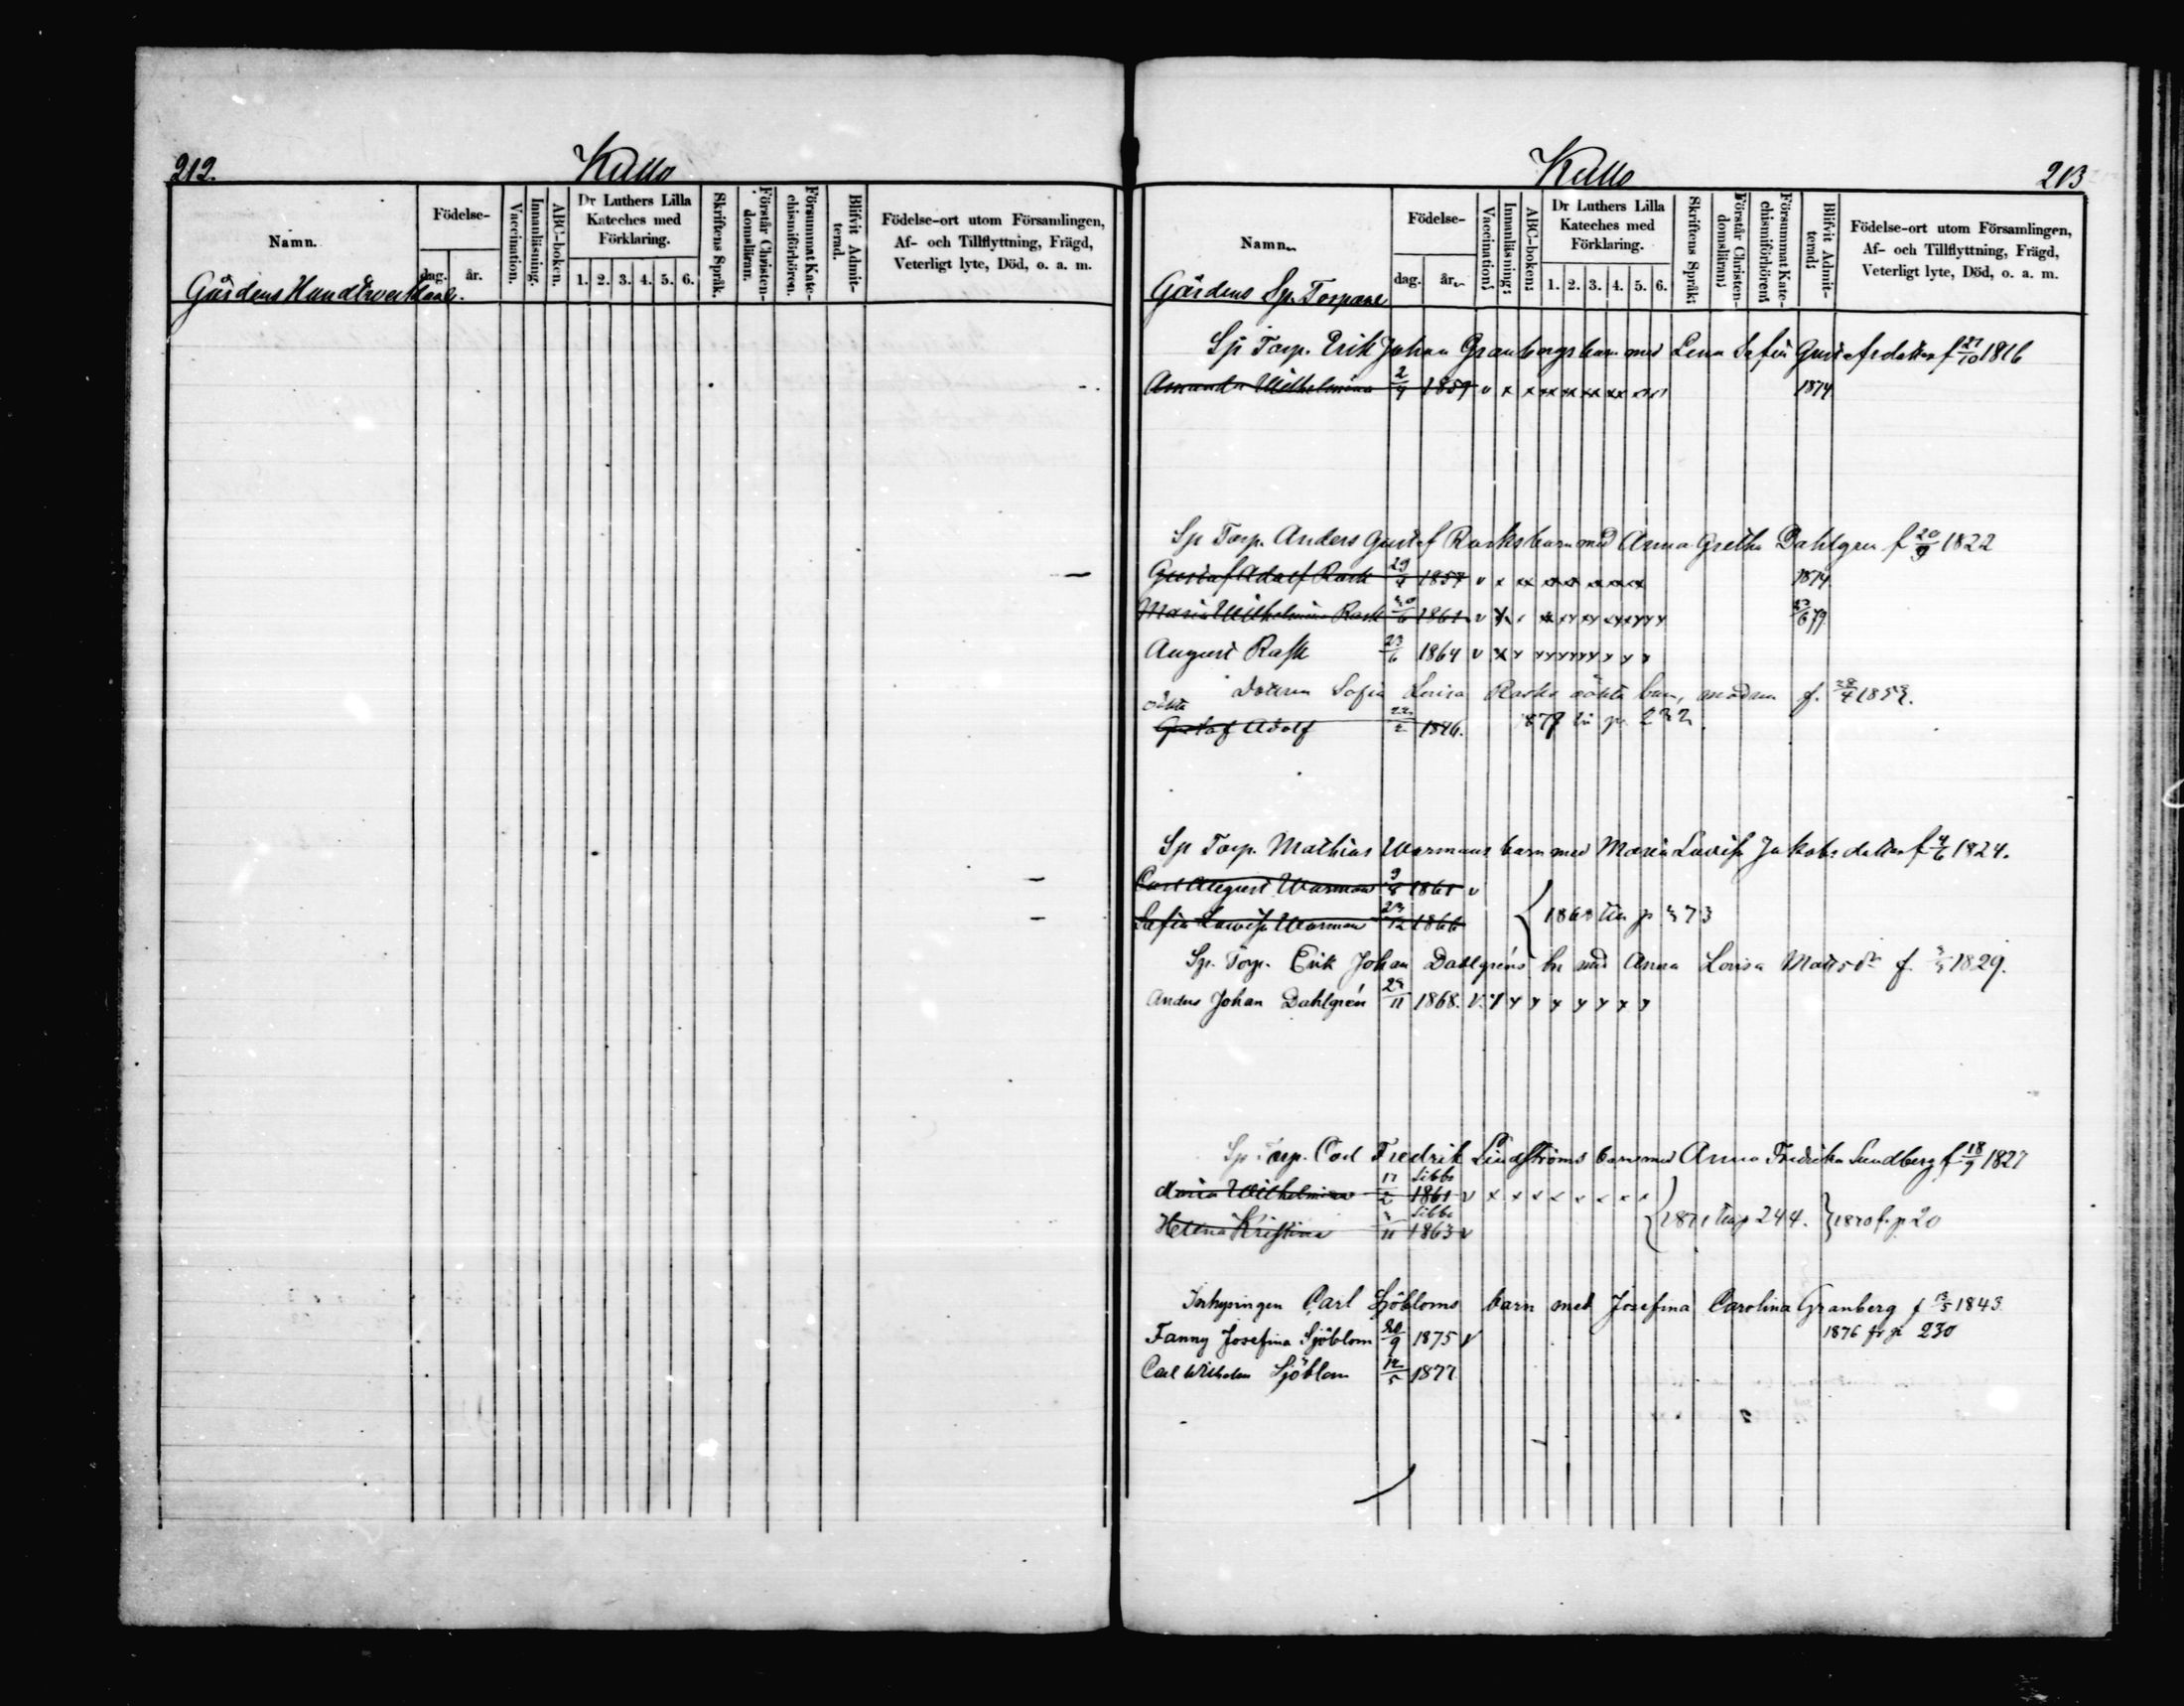 212.
Kullo
Namn.
Födelse-
dag.
år.
Vaccination.
Innanläsning.
ABC-boken.
Dr Luthers Lilla
Kateches med
Förklaring.
1. 2. 3. 4. 5. 6.
Skriftens Språk.
Förstår Christen-
domsläran.
Försummat Kate-
chismiförhören.
Blifvit Admit-
terad.
Födelse-ort utom Församlingen,
Af- och Tillflyttning, Frägd,
Veterligt lyte, Död, o. a. m.
Gårdens Handtverkare.
Kullo
213
Namn.
Födelse-
dag.
år.
Vaccination.
Innanläsning.
ABC-boken.
Dr Luthers Lilla
Kateches med
Förklaring.
1. 2. 3. 4. 5. 6.
Skriftens Språk.
Förstår Christen-
domsläran.
Försummat Kate-
chismiförhören.
Blifvit Admit-
terad.
Födelse-ort utom Församlingen,
Af- och Tillflyttning, Frägd,
Veterligt lyte, Död, o. a. m.
Gårdens Sp. Torpare
Sp Torp. Erik Johan Granbergs barn med Lena Sofia Gustafsdotter f 27/10 1816
Amanda Wilhelmina 2/4 1859 v x x xx xx xx xx 1874
Sp Torp. Anders Gustaf Rasks barn med Anna Gretha Dahlgren f 20/9 1822
Gustaf Adolf Rask 1857 v x xx xx xx xx xx 1874
Maria Wilhelmina Rask 1861 v x xx xy xy xyyyy /6 79
August Rask 23/6 1864 v x y yyyyyy y y y
Dottern Sofia Lovisa Rasks oäkta barn, modren f. 28/4 1853.
oäkta
Gustaf Adolf 22/2 1876. 1877 till p. 232.
Sp Torp. Mathias Warmans barn med Maria Lovisa Jakobsdotter f 4/6 1824.
Carl August Warman 1861 v
Sofia Lovisa Warman /12 1866 { 1868 till p 373
Sp. Torp. Erik Johan Dahlgréns bn med Anna Lovisa Mattsdr f. 1829.
Anders Johan Dahlgrén /11 1868. v. y y y y y y y y
Sp Torp. Carl Fredrik Lindströms barn med Anna Fredrika Sundberg f 18/9 1827
Sibbo
Maria Wilhelmina 17/2 1861 v x x x x x x x x
Sibbo
Helena Kristina /11 1863 v } 1871 till p 244. } 1870 fr. p 20
Inhysingen Carl Sjöbloms barn med Josefina Carolina Granberg f 13/5 1843
1876 fr p 230
Fanny Josefina Sjöblom 30/9 1875 v
Carl Wilhelm Sjöblom 12/5 1877